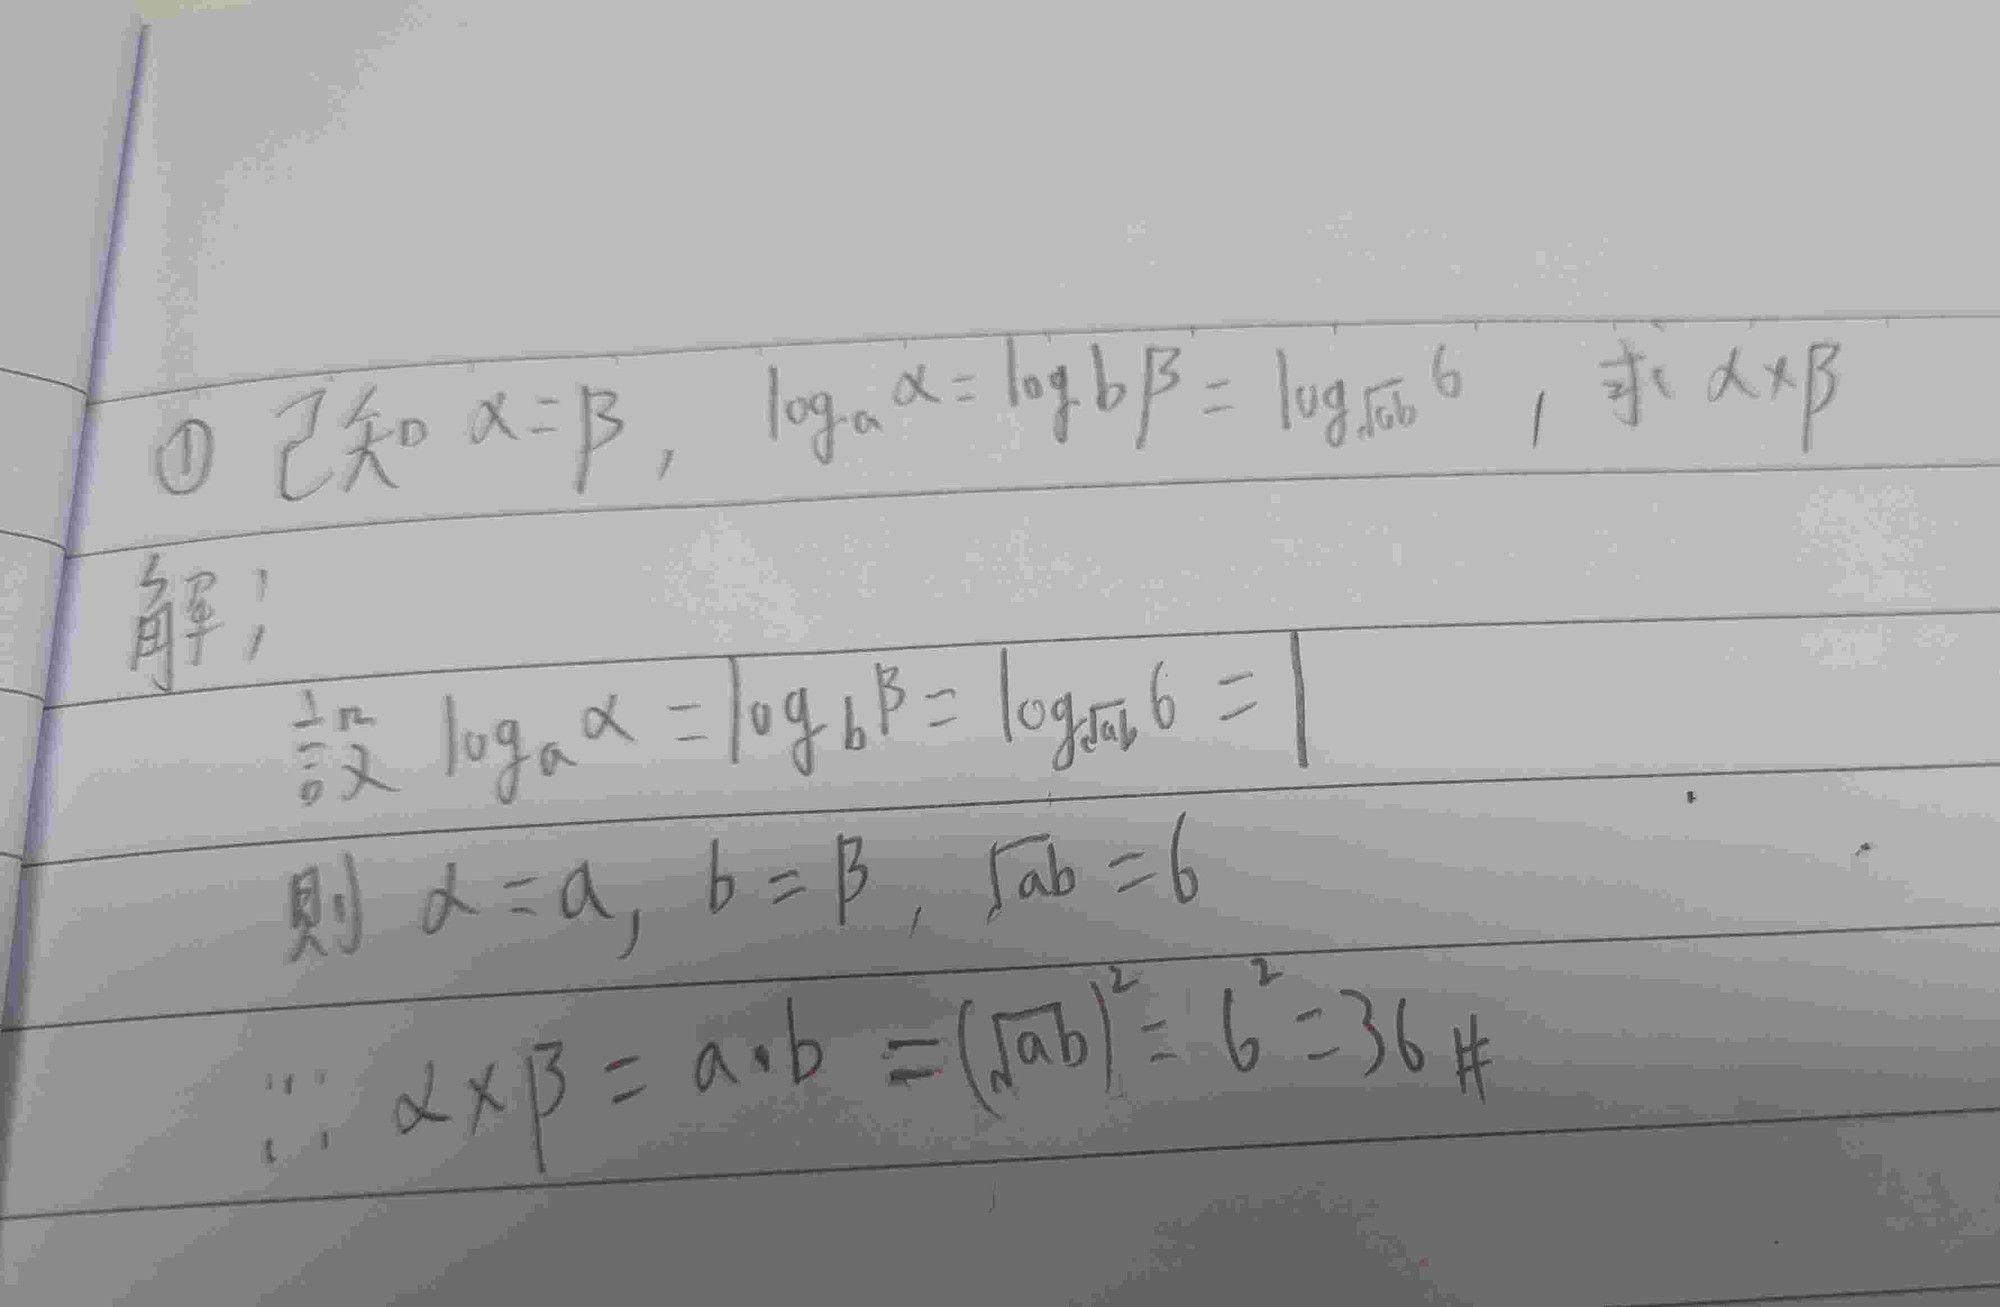 ① 已知 α=β, logₐα=log b β=log√ab 6, 求 α×β
解:
設 logₐα=log_bβ=log√ab 6=1
則 α=a, b=β, √ab=6
∴ α×β=a·b=(√ab)²=6²=36 #